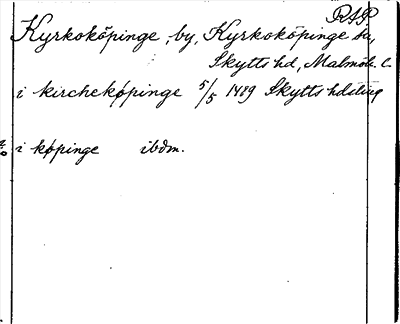 RAP
Kyrkoköpinge, by, Kyrkoköpinge sn,
Skytts hd, Malmöh. l.
i kircheköpinge 5/5 1489 Skytts hdding
i køpinge ibdm.